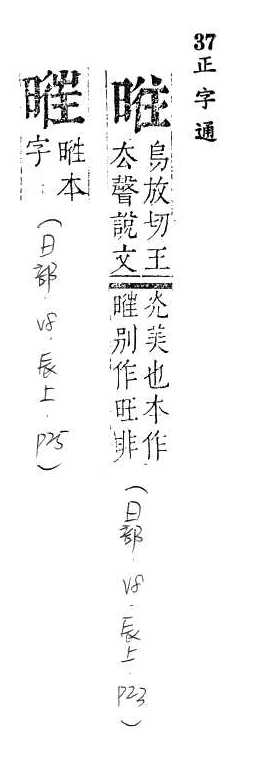 37 正字通
暀
烏放切王
厺聲說文
炗美也本作
別作旺非
(日部.V8.辰上.P23)
暀本
字
(日部.V8.辰上.P25)